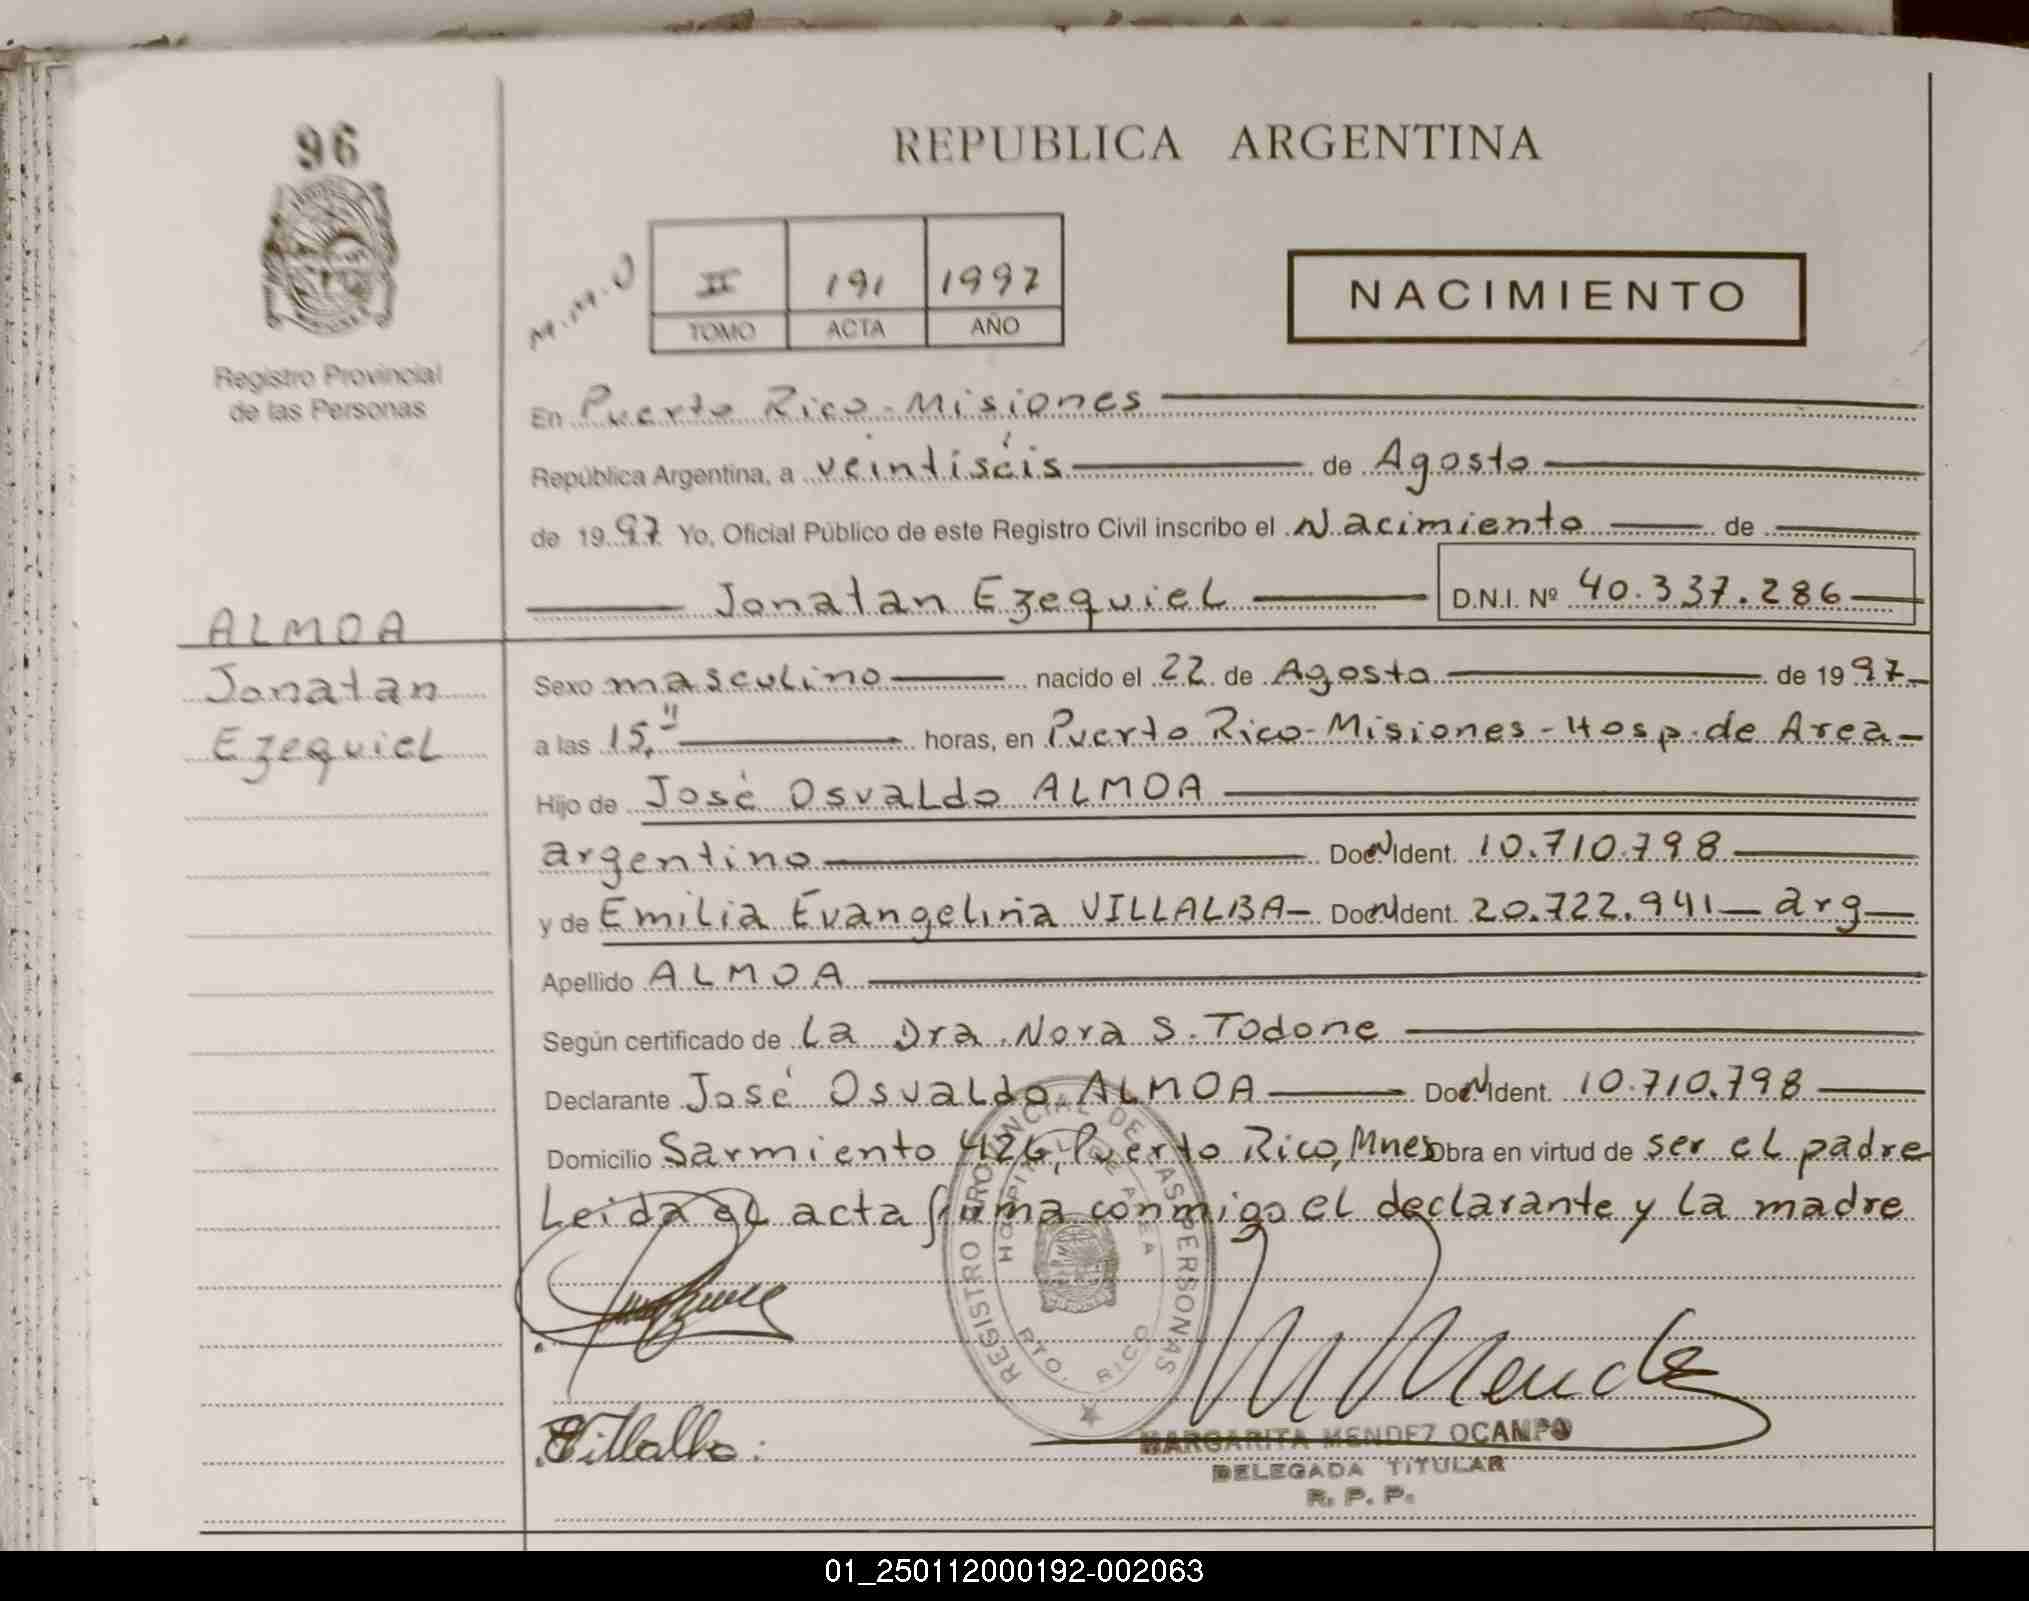 96
REPUBLICA ARGENTINA
M.M.O
II 191 1997
TOMO ACTA AÑO
NACIMIENTO
Registro Provincial
de las Personas
En Puerto Rico-Misiones
República Argentina, a veintiséis de Agosto
de 1997 Yo, Oficial Público de este Registro Civil inscribo el Nacimiento de
Jonatan Ezequiel D.N.I. Nº 40.337.286
ALMOA
Jonatan
Ezequiel
Sexo masculino nacido el 22 de Agosto de 1997
a las 15 horas, en Puerto Rico-Misiones-Hosp. de Area
Hijo de José Osvaldo ALMOA
argentino Doc N Ident. 10.710.798
y de Emilia Evangelina VILLALBA Doc N Ident. 20.722.941 arg
Apellido ALMOA
Según certificado de la Dra. Nora S. Todone
Declarante José Osvaldo ALMOA Doc N Ident. 10.710.798
Domicilio Sarmiento 426, Puerto Rico, Mnes Obra en virtud de ser el padre
Leida el acta firma conmigo el declarante y la madre
REGISTRO PROVINCIAL DE LAS PERSONAS
HOSPITAL DE AREA
PTO. RICO
M Mendez
Villalba
MARGARITA MENDEZ OCAMPO
DELEGADA TITULAR
R. P. P.
01_250112000192-002063